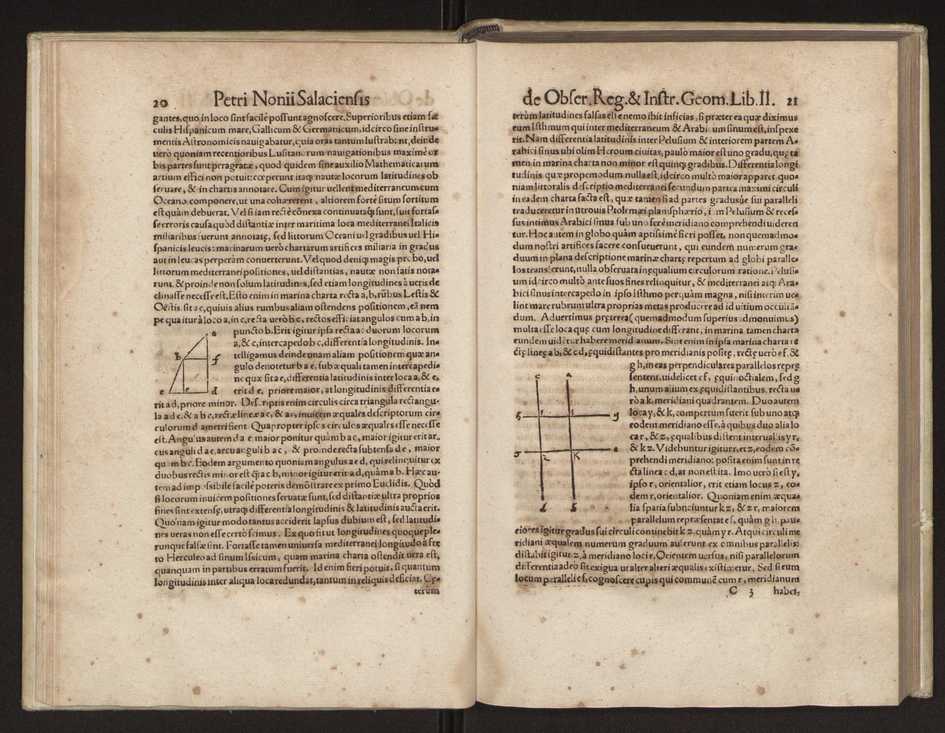 20 Petri Nonii Salaciensis
gantes, quo in loco sint facile possunt agnoscere. Superioribus etiam sæ
culis Hispanicum mare, Gallicum & Germanicum, idcirco sine instru-
mentis Astronomicis nauigabatur, quia oras tantum lustrabant, deinde
vero quoniam recentioribus Lusitanorum nauigationibus maximè or
bis partes sunt peragratæ, quod quidem sine auxilio Mathematicarum
artium effici non potuit: cœperunt itaq nautæ locorum latitudines ob
seruare, & in chartis annotare. Cum igitur uellent mediterraneum cum
Oceano componere, ut una cohærerent, altiorem fortè situm sortitum
est quàm debuerat. Vel si iam rectè cõnexa continuataq sunt, fuit fortasse
erroris causa, quòd distantiæ inter maritima loca mediterranei Italicis
miliaribus fuerunt annotatæ, sed littorum Oceani uel gradibus uel Hi-
spanicis leucis: marinarum uerò chartarum artifices miliaria in gradus
aut in leucas perperàm conuerterunt. Vel quod deniq magis probo, uel
littorum mediterranei positiones, uel distantias, nautæ non satis nota-
runt, & proinde non solum latitudines, sed etiam longitudines à ueris de
clinasse necesse est. Esto enim in marina charta recta a b, rúbus Lestis &
Oestis, sit a c, quiuis alius rumbus aliam ostendens positionem, eã nem
pe qua itur à loco a, in c, recta uerò b c, rectos efficiat angulos cum a b, in
puncto b. Erit igitur ipsa recta a c duorum locorum
a, & c, intercapedo b c, differentia longitudinis. In-
telligamus deinde unam aliam positionem quæ an-
gulo denotetur b a e, sub æquali tamen intercapedi-
ne quæ sit a e, differentia latitudinis inter loca a, & e,
erit d e, priore maior, at longitudinis differentia e-
rit a d, priore minor. Descriptis enim circulis circa triangula rectangu-
la a d e, & a b c, rectæ lineæ a c, & a e, inuicem æquales descriptorum cir-
culorum diametri sient. Quapropter ipsos circulos æquales esse necesse
est. Angulus autem d a e maior ponitur quàm b a c, maior igitur erit ar-
cus anguli d a e, arcu anguli b a c, & proinde recta subtensa d e, maior
quàm b c. Eodem argumento quoniam angulus a e d, qui relinquitur ex
duobus rectis minor est q̃ a c b, minor igitur erit a d, quàm a b. Hæc au-
tem ad impossibile facilè poteris demõstrare ex primo Euclidis. Quòd
si locorum inuicem positiones seruatæ sunt, sed distantiæ ultra proprios
fines sint extensæ, utraq differentia longitudinis & latitudinis aucta erit.
Quónam igitur modo tantus acciderit lapsus dubium est, sed latitudi-
nes ueras non esse certò scimus. Ex quo fit ut longitudines quoque ple-
runque falsæ sint. Fortasse tamen uniuersa mediterranei longitudo à fre
to Herculeo ad sinum Issicum, quam marina charta ostendit uera est,
quanquam in partibus erratum fuerit. Id enim fieri potuit, si quantum
longitudinis inter aliqua loca redundat, tantum in reliquis deficiat. Cę-
terùm
a
b f
e c d
de Obser. Reg. & Instr. Geom. Lib. II. 21
terùm latitudines falsas esse nemo ibit inficias, si præter ea quæ diximus
eum isthmum qui inter mediterraneum & Arabicum sinum est, inspexe
rit. Nam differentia latitudinis inter Pelusium & interiorem partem A-
rabici sinus ubi olim Heroum ciuitas, paulò maior est uno gradu, quę ta
men in marina charta non minor est quinq gradibus. Differentia longi-
tudinis quæ propemodum nulla est, idcirco multò maior apparet. quo-
niam littoralis descriptio mediterranei secundum partes maximi circuli
in eadem charta facta est, quæ tamen si ad partes gradusue sui paralleli
traduceretur in utrouis Ptolemæi planisphærio, iam Pelusium & reces-
sus intimus Arabici sinus sub uno ferè meridiano comprehendi uideren
tur. Hoc autem in globo quàm aptissimè fieri posset, non quemadmo-
dum nostri artifices facere consueuerunt, qui eundem numerum gra-
duum in plana descriptione marinæ chartę repertum ad globi paralle-
los transferunt, nulla obseruata inęqualium circulorum ratione. Pelusi-
um idcirco multò ante suos fines relinquitur, & mediterranei atq Ara-
bici sinus intercapedo in ipso isthmo perquàm magna, nisi interim uel-
lint mare rubrum ultra proprias metas producere ad id uitium occultã-
dum. Aduertimus pręterea (quemadmodum superius admonuimus)
multa esse loca quę cum longitudine differant, in marina tamen charta
eundem uidentur habere meridianum. Sint enim in ipsa marina charta re
ctę lineę a b, & c d, ęquidistantes pro meridianis positę, rectę uerò e f, &
g h, in eas perpendiculares parallelos reprę
sentent, uidelicet e f, ęquinoctialem, sed g
h, unum alium ex ęquidistantibus. recta ue
rò a k, meridiani quadrantem. Duo autem
loca y, & k, compertum fuerit sub uno atq
eodem meridiano esse, à quibus duo alia lo
ca r, & z, ęqualibus distent interuallis y r,
& k z. Videbuntur igitur r, et z, eodem cõ-
prehendi meridiano: posita enim sunt in re
cta linea c d, at non est ita. Imo uerò si est y,
ipso r, orientalior, erit etiam locus z, eo-
dem r, orientalior. Quoniam enim æqua-
lia spatia subtenduntur k z, & z r, maiorem
parallelum repræsentat e f, quàm g h, plu-
riores igitur gradus sui circuli continebit k z, quàm y r. Atqui circuli me
ridiani æqualem numerum graduum auferunt ex omnibus parallelis:
distabit igitur z, à meridiano loci r, Orientem uersus, nisi parallelorum
differentia adeò sit exigua ut alter alteri æqualis existimetur. Sed si eum
locum paralleli e f, cognoscere cupis qui communẽ cum r, meridianum
C 3 habet,
c A
g
z K
d b